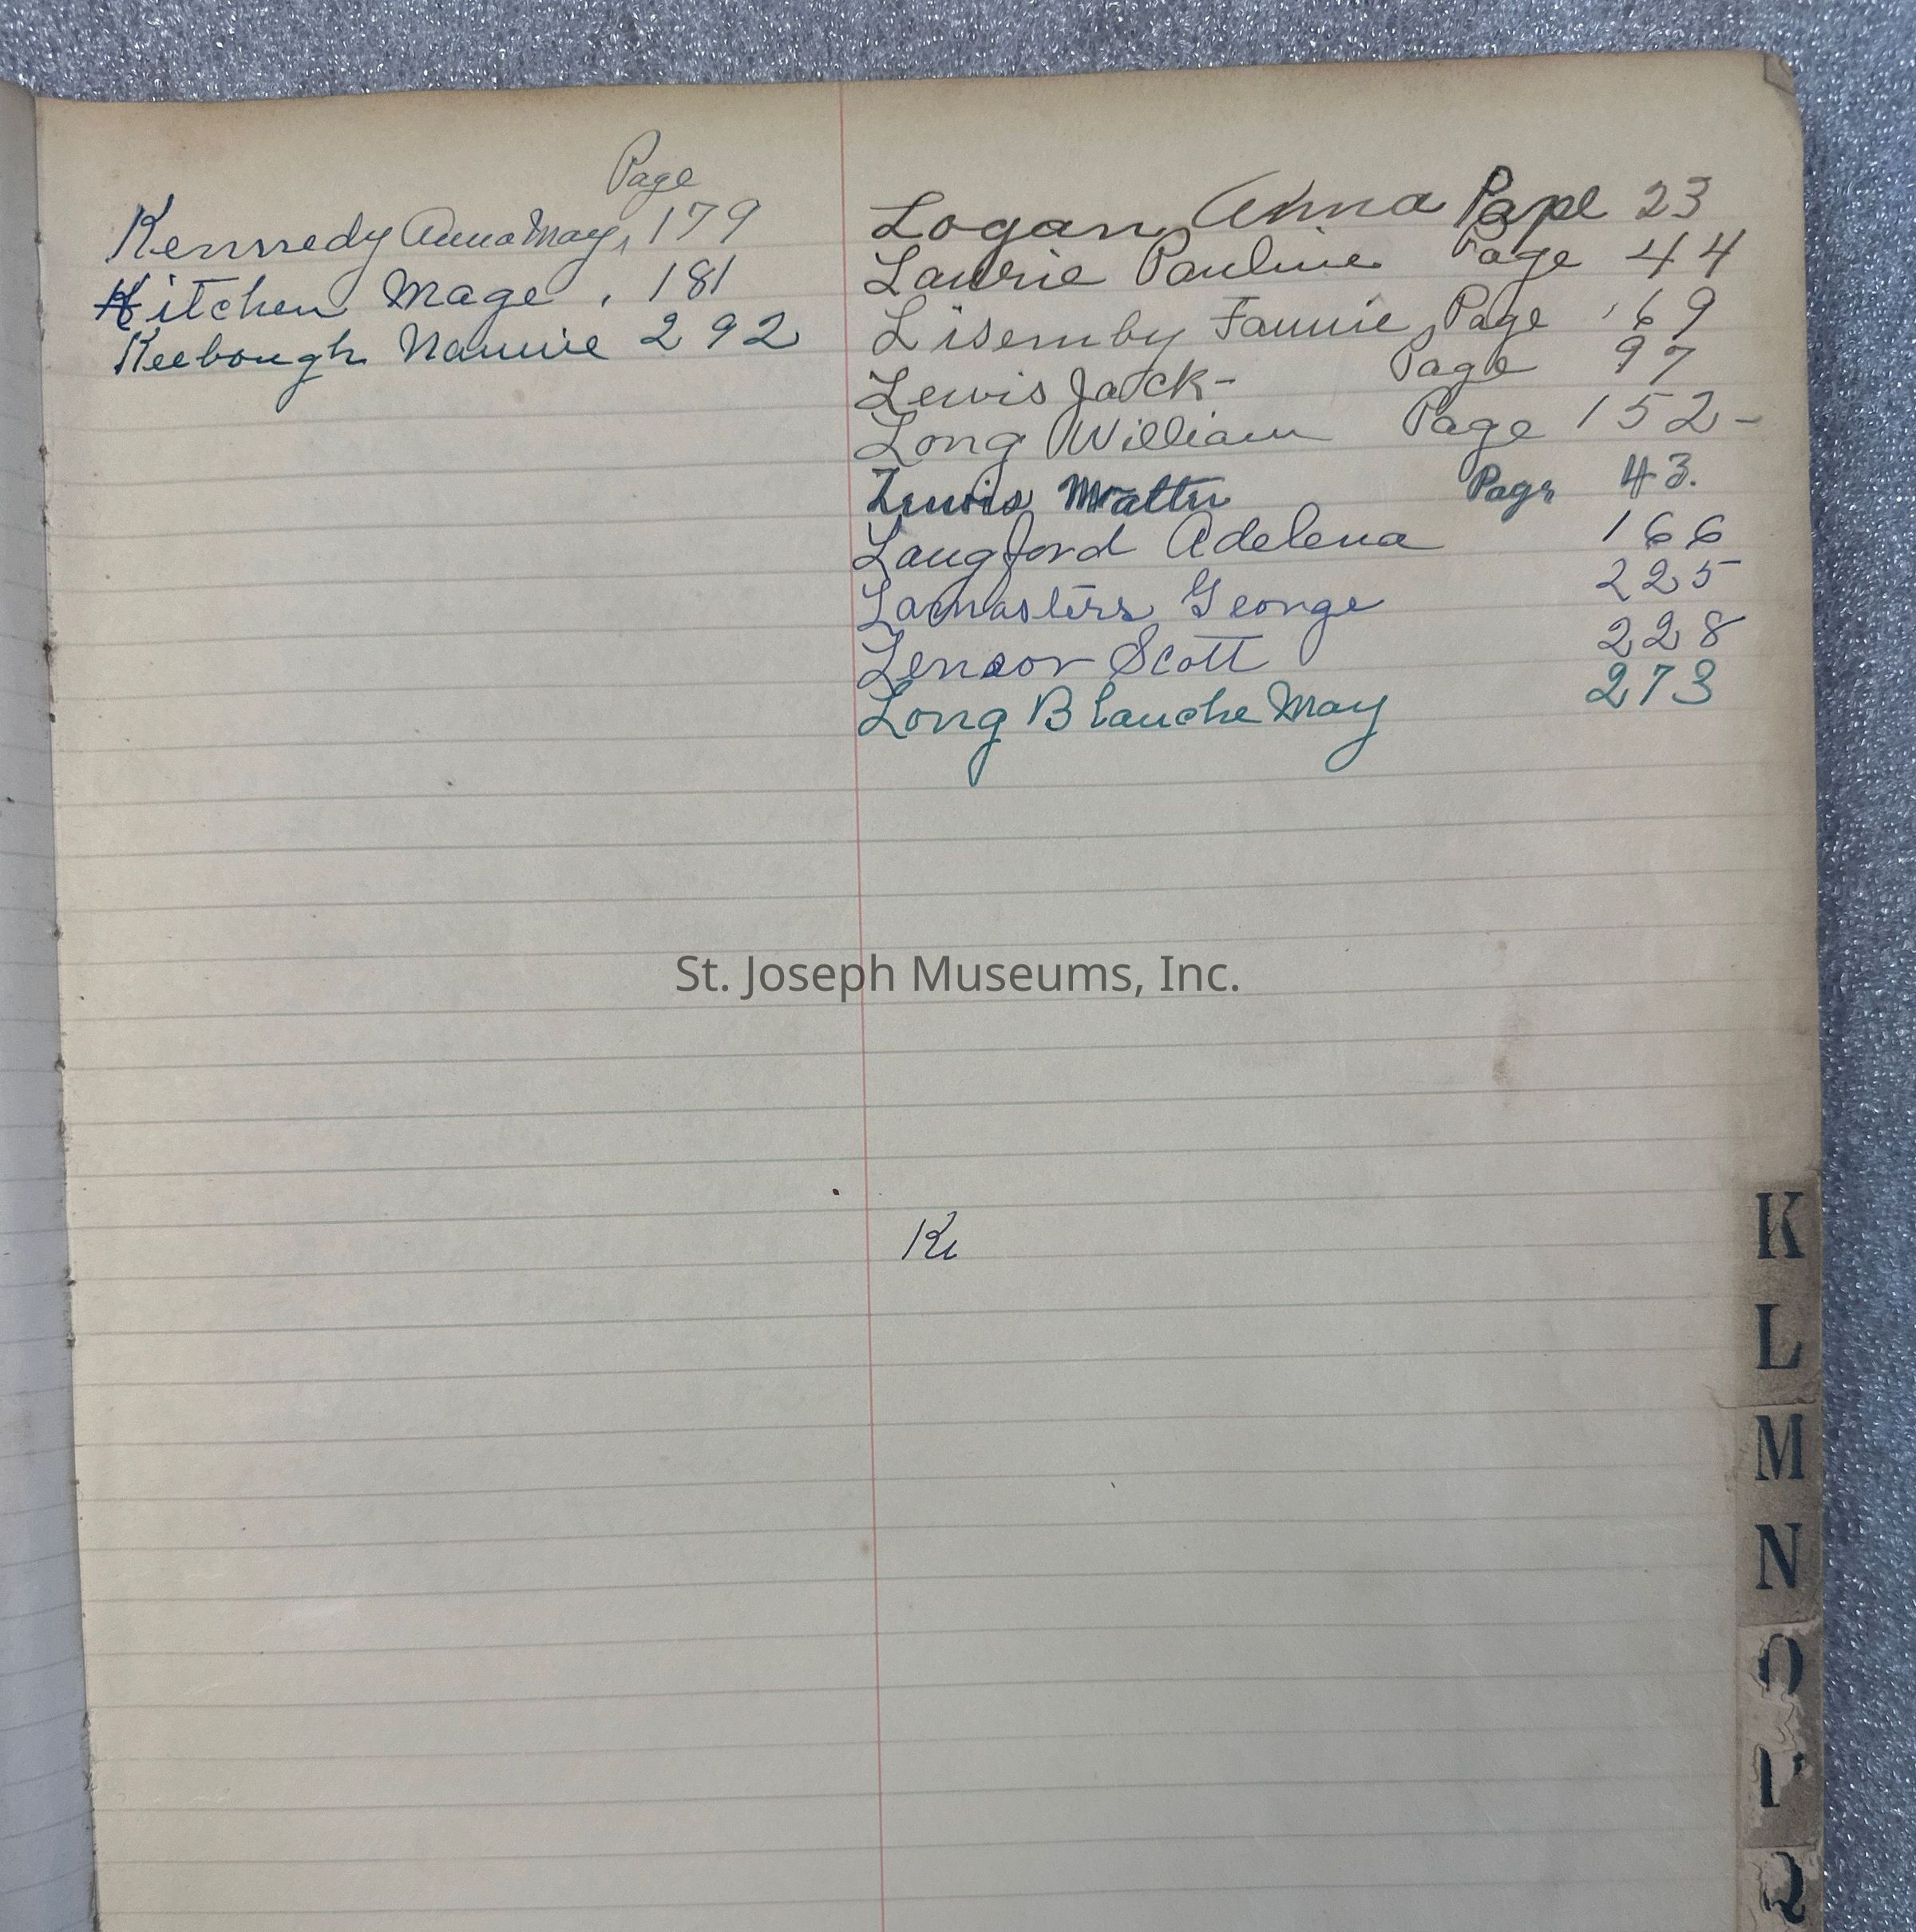 Page
Kennedy Anna May, 179
Kitchen Mage . 181
Keebough Nannie 292
Logan, Anna Pape 23
Laurie Pauline Page 44
Lisemby Fannie, Page 69
Lewis Jack- Page 97
Long William Page 152-
Lewis Page 43.
Langford Adelena 166
Lamasters George 225
Scott 228
Long Blanche May 273
St. Joseph Museums, Inc.
Ke
K
L
M
N
O
P
Q